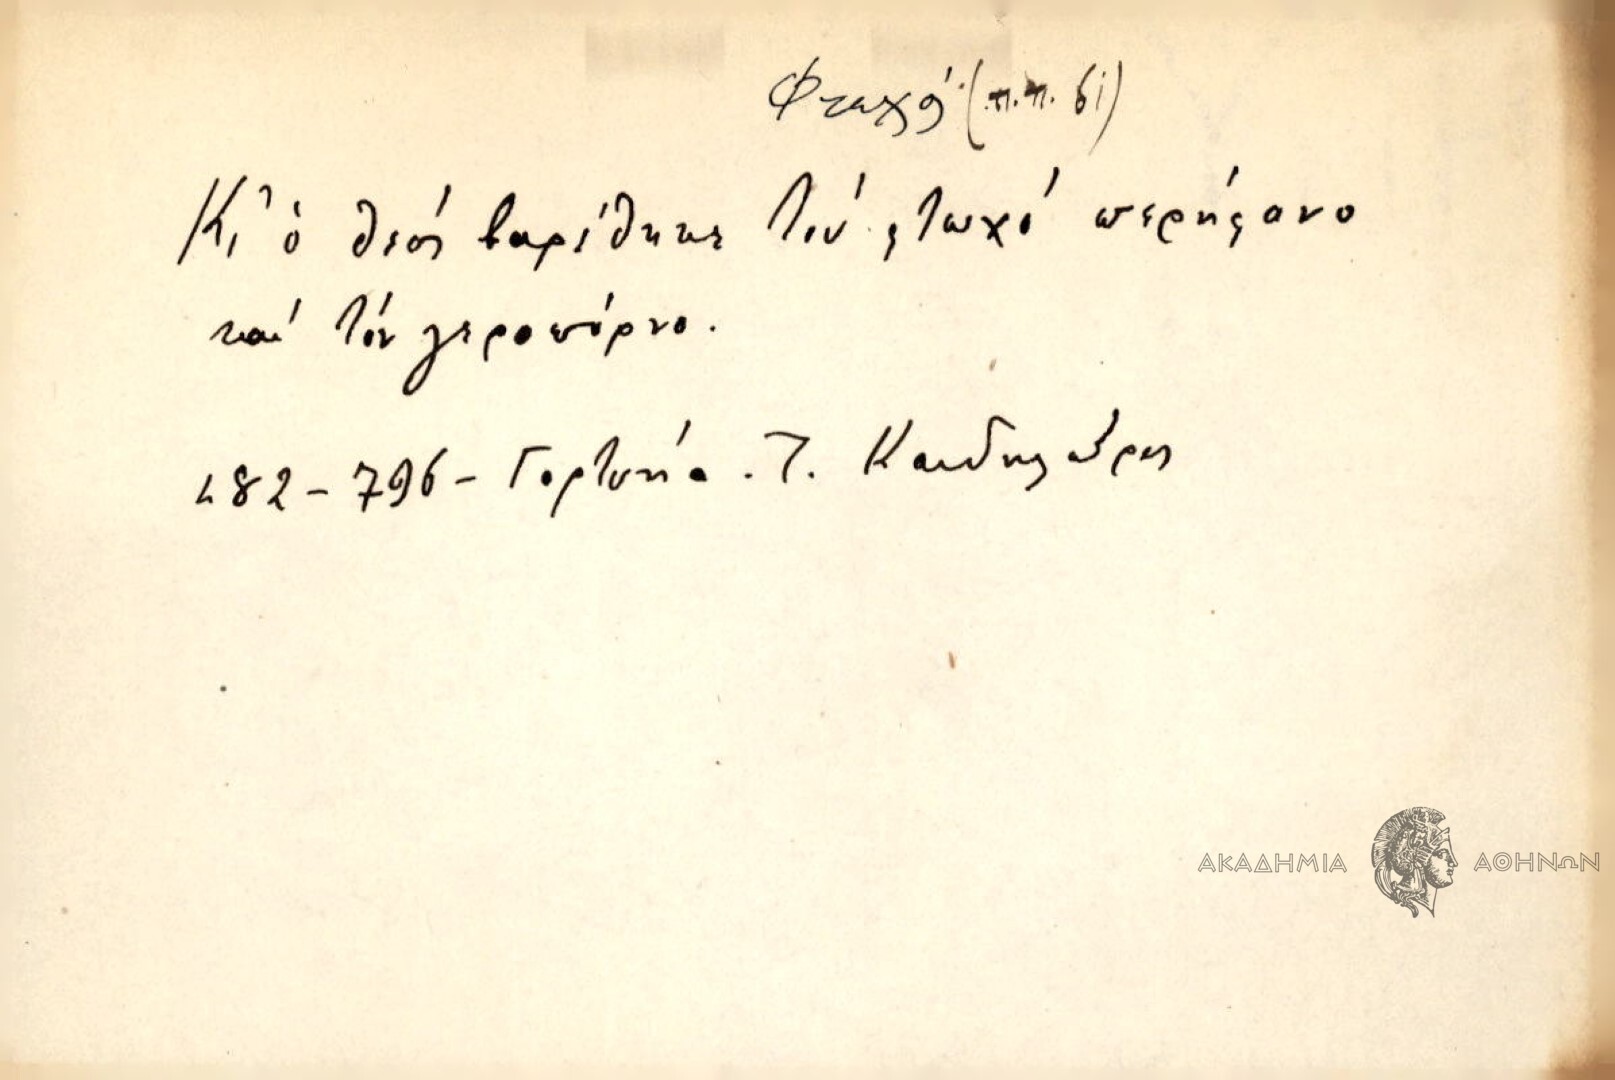 Φτωχός (π.π. 61)
Κι' ὁ θεός βαρέθηκε τόν φτωχό περήφανο
καί τόν γεροπόρνο.
182 - 796 - Γορτυνία. Τ. Κανδηλώρος
ΑΚΑΔΗΜΙΑ ΑΘΗΝΩΝ